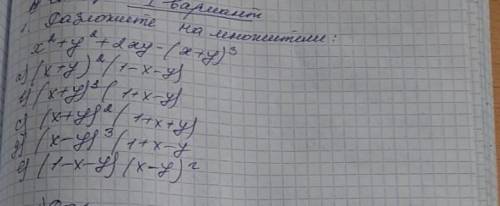 1 вариант
1. Разложите на множители:
x²+y²+2xy-(x+y)³
a) (x+y)²(1-x-y)
в) (x+y)³(1+x-y)
c) (x+y)²(1+x+y)
д) (x-y)³(1+x-y
e) (1-x-y)(x-y)²